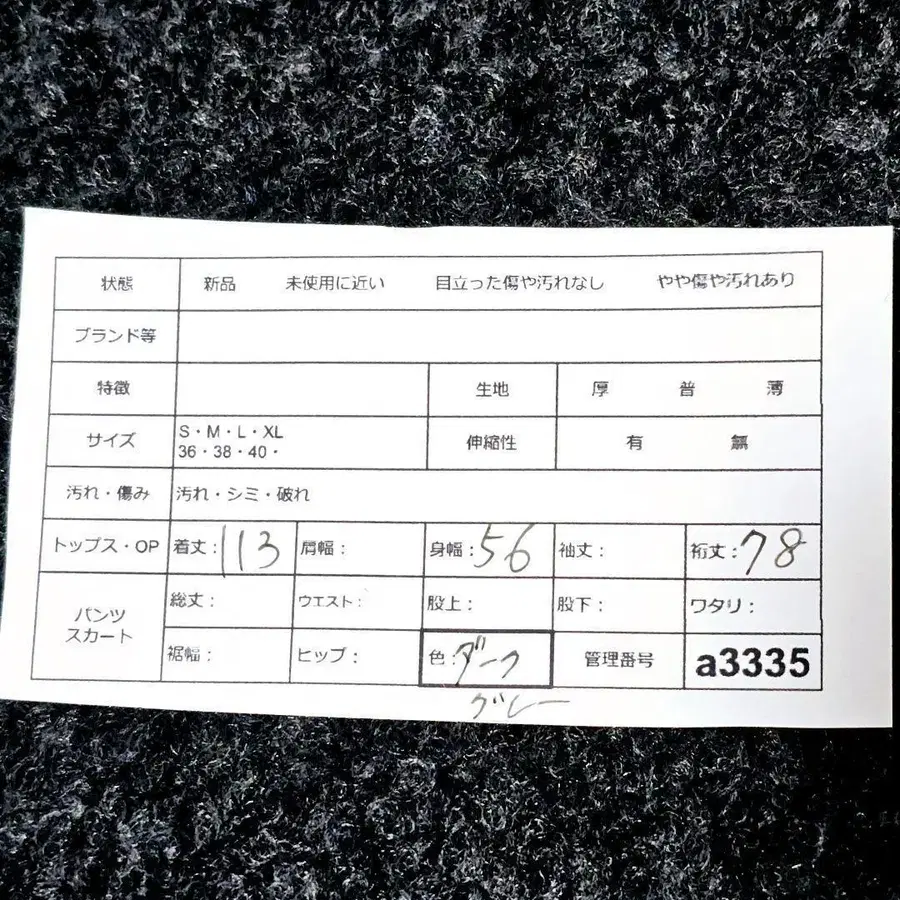 状態 新品 未使用に近い 目立った傷や汚れなし やや傷や汚れあり
ブランド等
特徴 生地 厚 普 薄
サイズ S・M・L・XL
36・38・40・
伸縮性 有 無
汚れ・傷み 汚れ・シミ・破れ
トップス・OP 着丈：113 肩幅： 身幅：56 袖丈： 裄丈：78
パンツ
スカート
総丈： ウエスト： 股上： 股下： ワタリ：
裾幅： ヒップ： 色：ダーク 管理番号 a3335
グレー